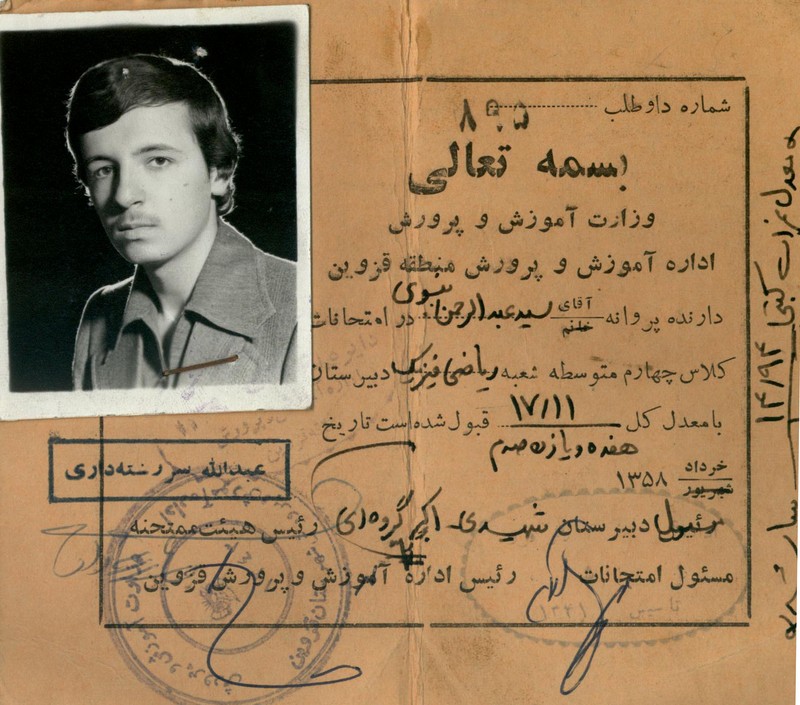 شماره داوطلب ۸۹۵
بسمه تعالی
وزارت آموزش و پرورش
اداره آموزش و پرورش منطقه قزوین
دارنده پروانه آقای خانم سید عبدالرحمن در امتحانات
کلاس چهارم متوسطه شعبه ریاضی فیزیک دبیرستان
با معدل کل ۱۷/۱۱ قبول شده است تاریخ
هفده و یازده صدم
خرداد شهریور ۱۳۵۸
عبدالله سررشته‌داری
رئیس دبیرستان شهیدی رئیس هیئت ممتحنه
مسئول امتحانات رئیس اداره آموزش و پرورش قزوین
معدل نمرات کتبی ۱۴/۹۴